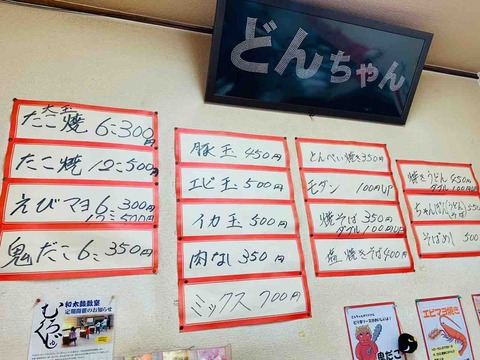 どんちゃん
大玉
たこ焼 6コ300円
たこ焼 12コ500円
えびマヨ 6コ300円
12コ500円
鬼だこ 6コ 350円
豚玉 450円
エビ玉 500円
イカ玉 500円
肉なし 350円
ミックス 700円
とんぺい焼き350円
モダン 100円UP
焼そば 350円
ダブル100円UP
塩焼きそば400円
焼きうどん 450円
ダブル100円UP
ちゃんぽん(うどん/そば)
そばめし 500
和太鼓教室
定期開催のお知らせ
鬼だこ
エビマヨ焼き